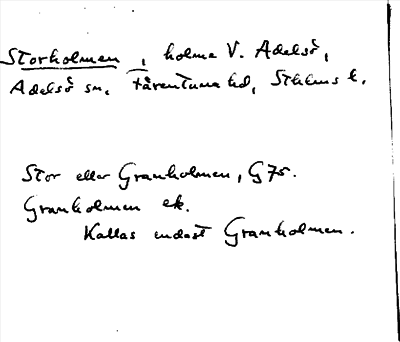 Storholmen, holme V. Adelsö,
Adelsö sn, Färentuna hd, Sthlms l.
Stor eller Granholmen, G75.
Granholmen ek.
Kallas endast Granholmen.